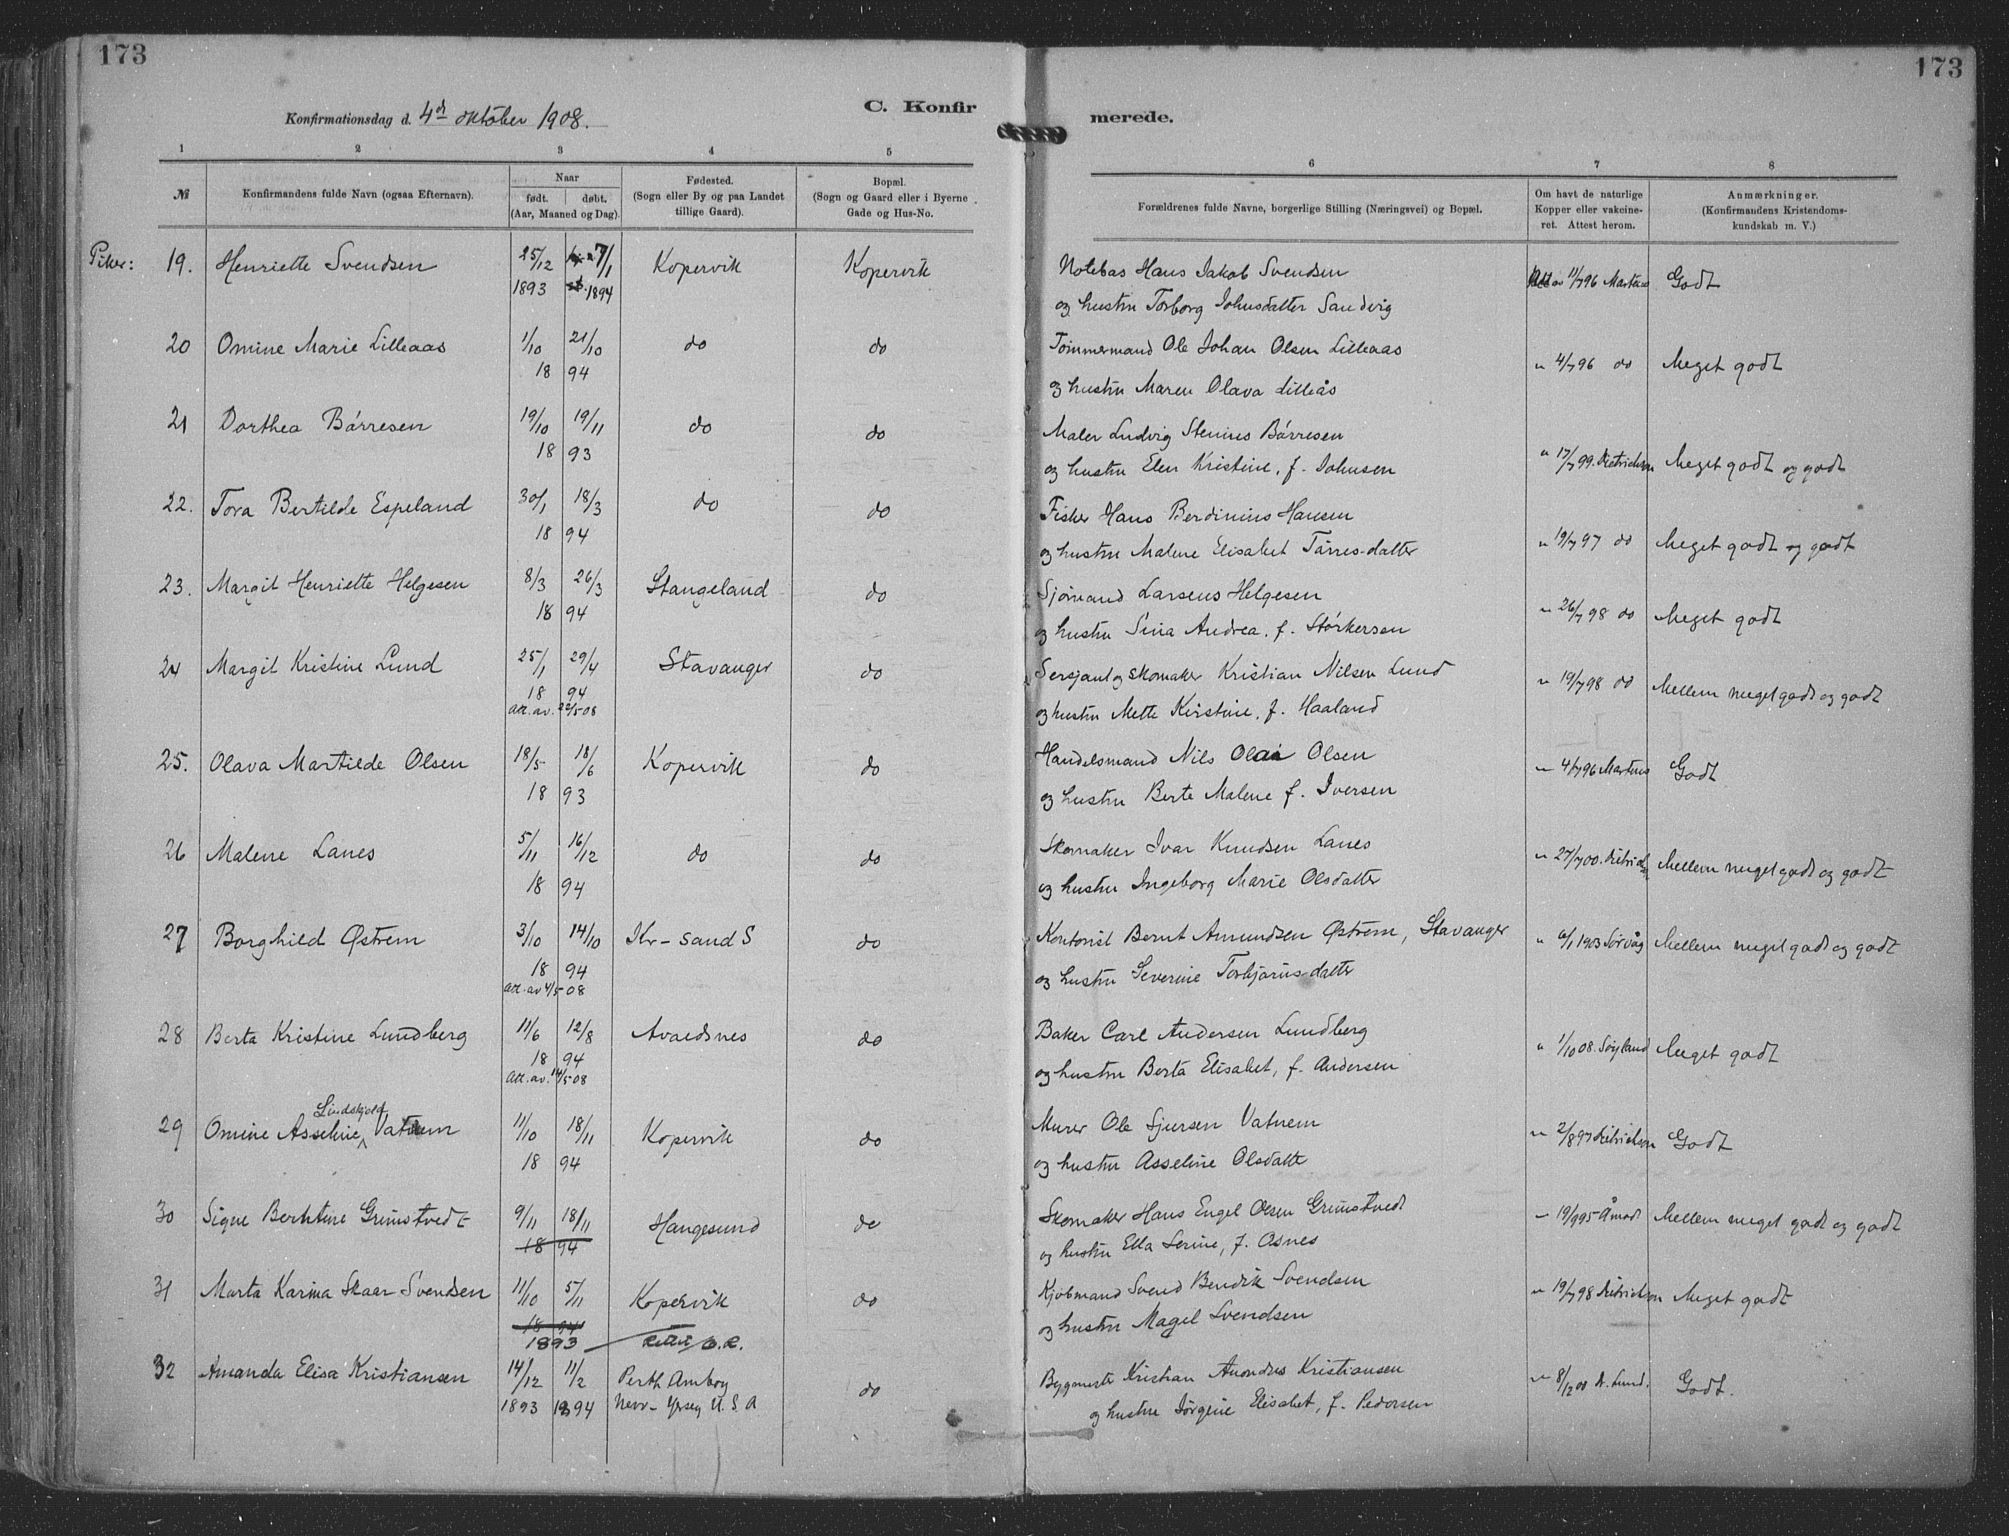 173
173
Konfirmationsdag d. 4de oktober 1908.
C. Konfir
merede.
1 2 3 4 5 6 7 8
№
Konfirmandens fulde Navn (ogsaa Efternavn).
Naar
født. døbt.
(Aar, Maaned og Dag).
Fødested.
(Sogn eller By og paa Landet
tillige Gaard).
Bopæl.
(Sogn og Gaard eller i Byerne
Gade og Hus-No.
Forældrenes fulde Navne, borgerlige Stilling (Næringsvei) og Bopæl.
Om havt de naturlige
Kopper eller vakcine-
ret. Attest herom.
Anmærkninger.
(Konfirmandens Kristendoms-
kundskab m. V.)
Piker: 19. Henriette Svendsen 25/12 7/1 Kopervik Kopervik Notebas Hans Jakob Svendsen Att av 11/7 96 Martens Godt
1893 1894 og hustru Torborg Johnsdatter Sandvig
20 Omine Marie Lilleaas 1/10 21/10 do do Tømmermand Ole Johan Olsen Lilleaas " 4/7 96 do Meget godt
18 94 og hustru Maren Olava Lilleås
21 Dorthea Børresen 19/10 19/11 do do Maler Ludvig Stenius Børresen " 17/7 99. Dietrichson Meget godt og godt
18 93 og hustru Elen Kristine, f. Johnsen
22. Tora Bertilde Espeland 30/1 18/3 do do Fisker Hans Berdinius Hansen " 19/7 97 do Meget godt og godt
18 94 og hustru Malene Elisabet Tørresdatter
23. Margit Henriette Helgesen 8/3 26/3 Stangeland do Sjømand Larsens Helgesen " 26/7 98 do Meget godt
18 94 og hustru Sina Andrea. f. Størkersen
24 Margit Kristine Lund 25/1 29/4 Stavanger do Sersjant og skomaker Kristian Nilsen Lund " 19/7 98 do Mellem meget godt og godt
18 94 og hustru Mette Kirstine, f. Haaland
Att. av. 22/5-08
25. Olava Martilde Olsen 18/5 18/6 Kopervik do Handelsmand Nils Olai Olsen " 4/7 96 Martens Godt
18 93 og hustru Berte Malene f. Iversen
26 Malene Lanes 5/11 16/12 do do Skomaker Ivar Knudsen Lanes " 27/7 00. Dietrichson Mellem meget godt og godt
18 94 og hustru Ingeborg Marie Olsdatter
27 Borghild Østrem 3/10 14/10 Kr-sand S do Kontorist Bernt Amundsen Østrem, Stavanger " 6/1 1903 Sørvåg Mellem meget godt og godt
18 94 og hustru Severine Torbjørnsdatter
Att. av 4/5-08
28 Berta Kristine Lundberg 11/6 12/8 Avaldsnes do Baker Carl Andersen Lundberg " 1/10 08. Søyland Meget godt
18 94 og hustru Berta Elisabet, f. Andersen
Att. av. 14/5-08
Lindskjold
29 Omine Asseline Vatnem 11/10 18/11 Kopervik do Murer Ole Sjursen Vatnem " 2/8 97 Dietrichson Godt
18 94 og hustru Asseline Olsdatter
30 Signe Berntine Grimstvedt 9/11 18/11 Haugesund do Skomaker Hans Engel Olsen Grimstvedt " 19/9 95 Åmodt Mellem meget godt og godt
18 94 og hustru Ella Serine, f. Osnes
31 Marta Karina Skaar Svendsen 11/10 5/11 Kopervik do Kjøbmand Svend Bendik Svendsen " 19/7 98 Dietrichson Meget godt
18 94 og hustru Magel Svendsen
1893 Rettet O.R.
32 Amanda Elisa Kristiansen 14/12 11/2 Perth Amboy do Bygmester Kristian Amondus Kristiansen " 8/12 00 K. Lund. Godt.
1893 1894 New-Yersey U.S.A og hustru Jørgine Elisabet, f. Pedersen